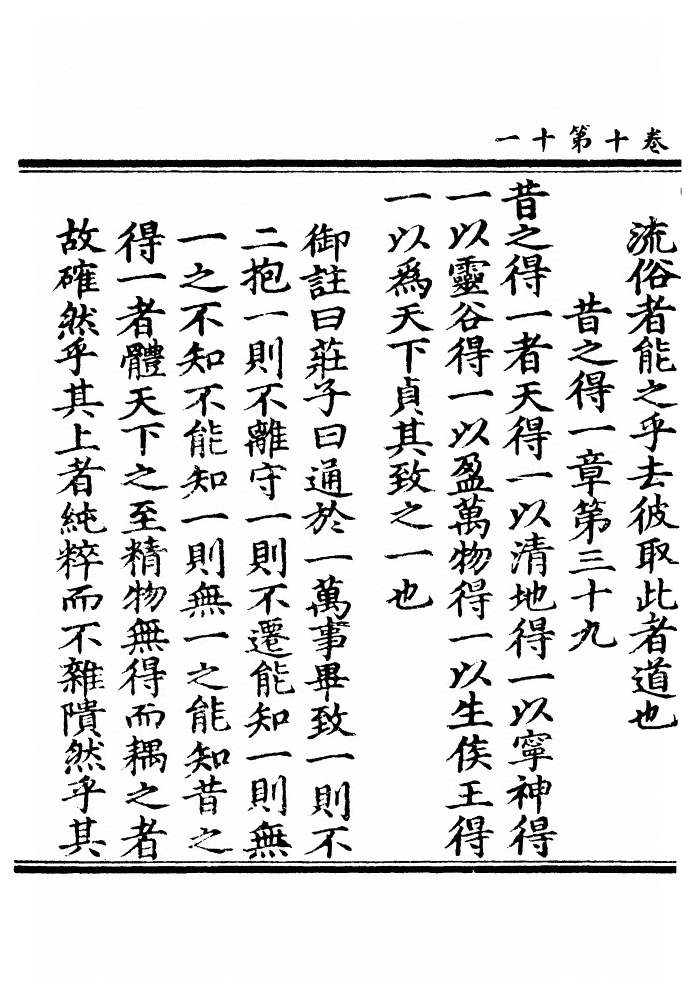 卷十第十一
流俗者能之乎去彼取此者道也
昔之得一章第三十九
昔之得一者天得一以清地得一以寧神得
一以靈谷得一以盈萬物得一以生侯王得
一以爲天下貞其致之一也
御註曰莊子曰通於一萬事畢致一則不
二抱一則不離守一則不遷能知一則無
一之不知不能知一則無一之能知昔之
得一者體天下之至精物無得而耦之者
故確然乎其上者純粹而不雜隤然乎其